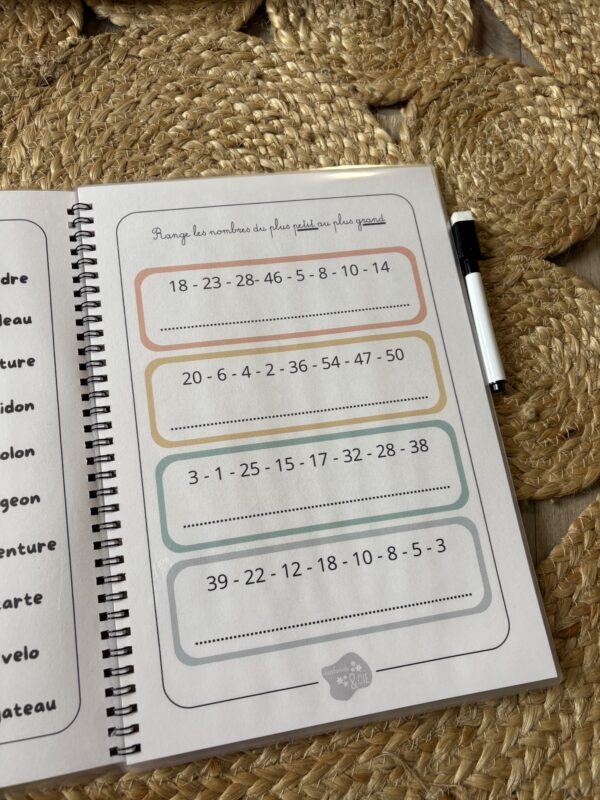 dre
leau
ture
idon
olon
geon
enture
arte
velo
gateau
Range les nombres du plus petit au plus grand
18 - 23 - 28- 46 - 5 - 8 - 10 - 14
20 - 6 - 4 - 2 - 36 - 54 - 47 - 50
3 - 1 - 25 - 15 - 17 - 32 - 28 - 38
39 - 22 - 12 - 18 - 10 - 8 - 5 - 3
& CIE